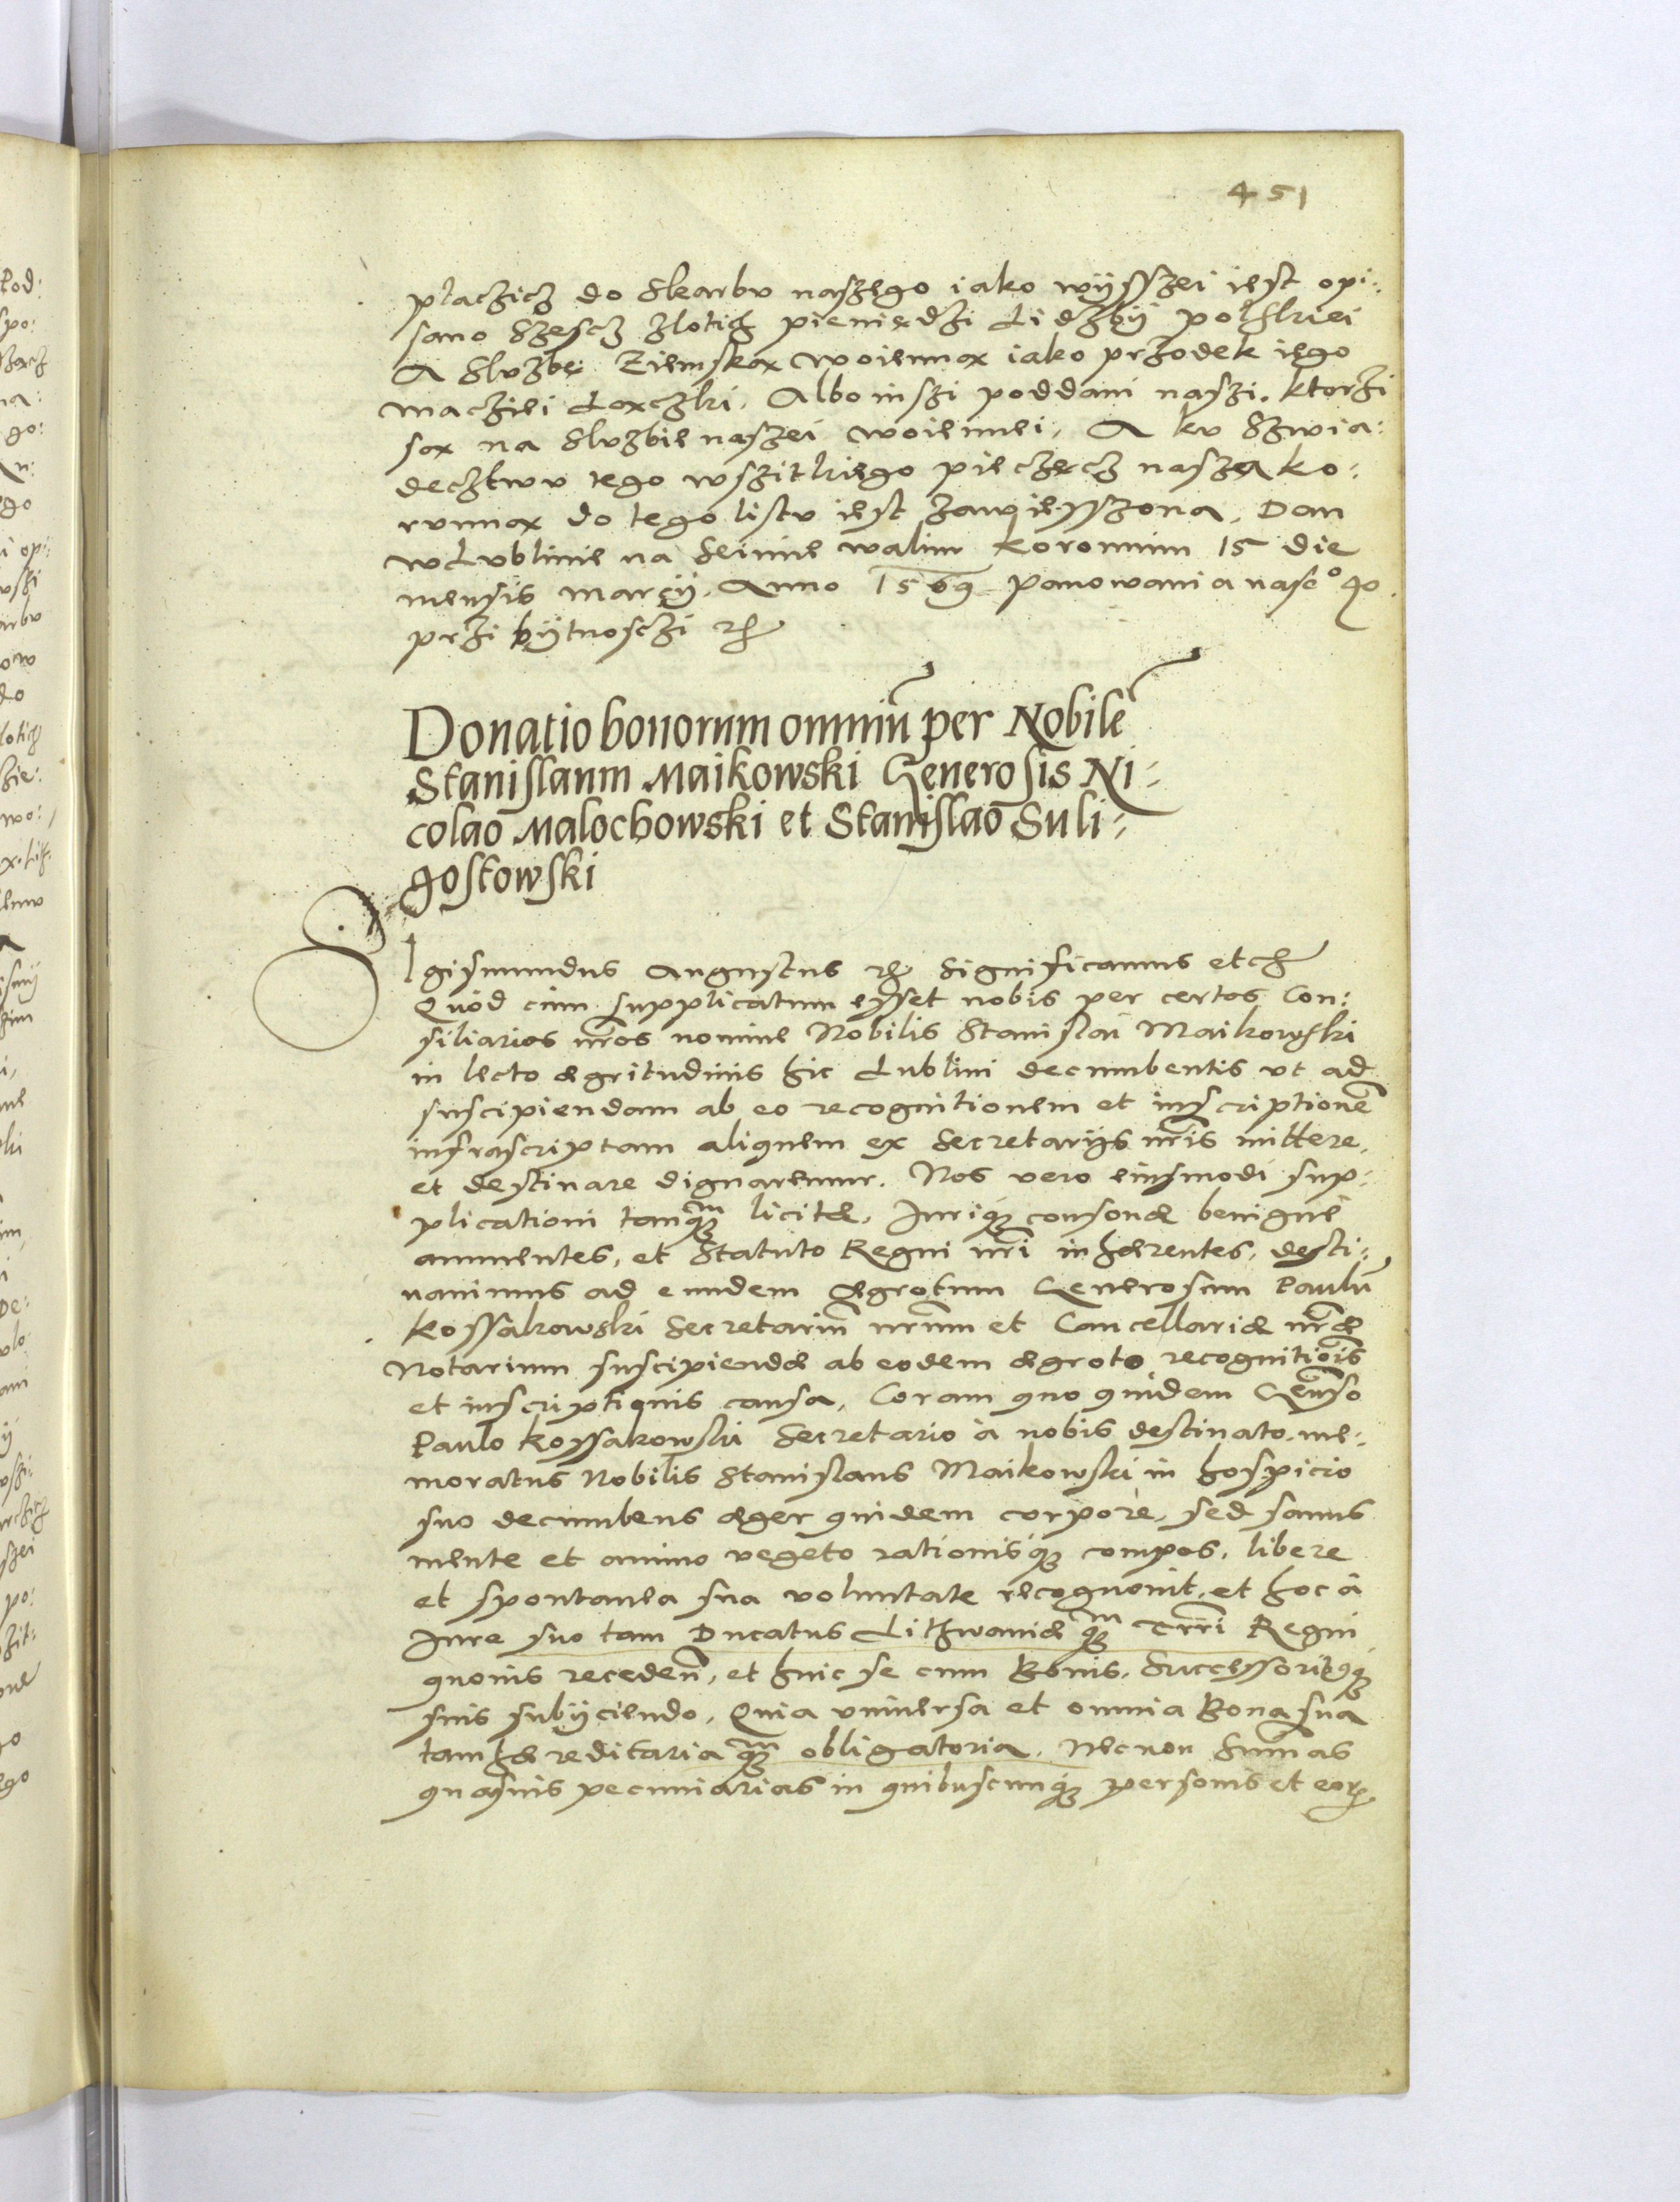 451
placzicz do Skarbu naszego iako wyssżei iest opi:
sano Szescz zlotich pieniędzi Lidzby polskiei
A Sluzbę Ziemską woienną iako przodek iego
Macziei Lączki. Albo inszi poddani naszi. ktorzi
są na Sluzbie naszei woiennei, A ku Szwia:
decztwu tego wszitkiego pieczęcz naszą ko:
runna do tego listu iest zawiesszona, Dan
w Lublinie na Seimie walnim koronnim 15 die
mensis marcÿ. Anno 1569 panowania nase° 40.
przi bÿtnosczi etc
Donatio bonorum omniū per Nobilē
Stanislaum Maikowski Generosis Ni:
colao Malochowski et Stanislao Suli:
gostowski
Sigismundus Augustus etc Significamus etc
Quod cum supplicatum esset nobis per certos Con:
siliarios nr̄os nomine Nobilis Stanislai Maikowski
in lecto ægritudinis hic Lublini decumbentis ut ad
suscipiendam ab eo recognitionem et inscriptionē
infrascriptam aliquem ex Secretarÿs nr̄is mittere,
et destinare dignaremur. Nos vero eiusmodi sup:
plicationi tanq̃ licitæ, Juriq; consonæ benigne
annuentes, et Statuto Regni nr̄i inhærentes, desti:
nauimus ad eundem ægrotum Generosum Paulū
Kossakowski Secretariū nrūm et Cancellariæ nr̄æ
Notarium suscipiendæ ab eodem ægroto recognitiōis
et inscriptionis causa, Coram quo quidem Gēnso
Paulo Kossakowski Secretario à nobis destinato, me:
moratus Nobilis Stanislaus Maikowski in hospicio
suo decumbens æger quidem corpore, sed sanus
mente et animo vegeto rationisq; compos, libere
et spontanea sua voluntate recognouit, et hoc à
Jure suo tam Ducatus Lithwaniæ q̃ Trr̄i Regni
quouis recedeñ, et huic se cum Bonis, Successoribusq;
suis subÿciendo, Quia vniuersa et omnia Bona sua
tam hæreditaria q̃ obligatoria, Nec non Sum̄as
quasuis pecuniarias in quibuscunq; personis et eorꝫ